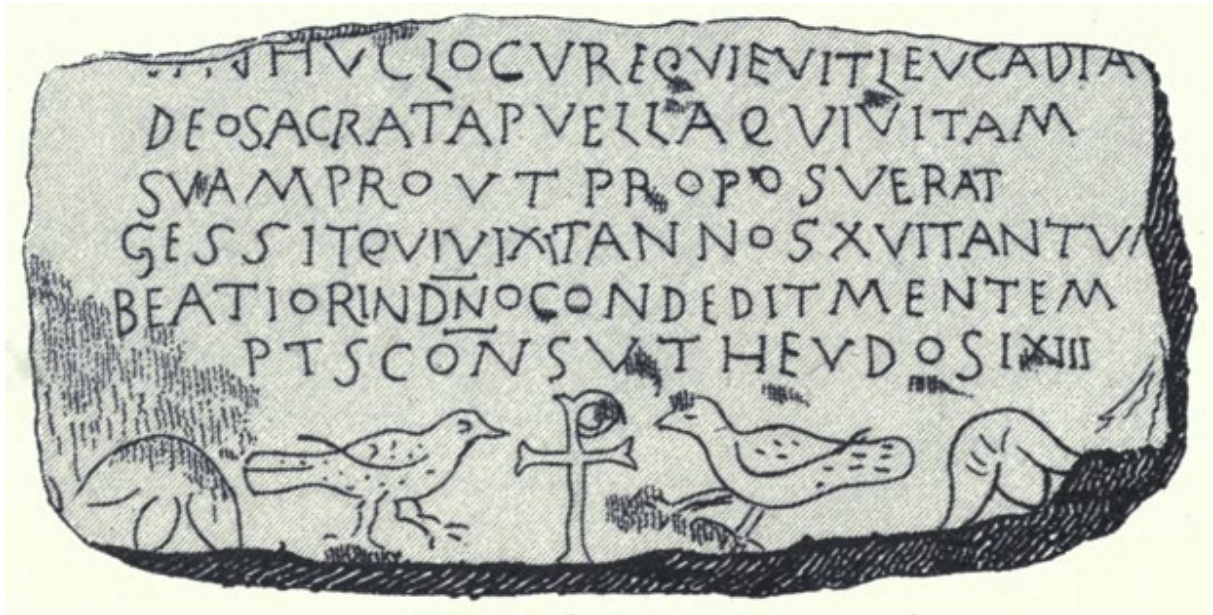 HVC LOCV REQVIEVIT LEVCADIA
DEO SACRATA PVELLA QVI VITAM
SVAM PROVT PROPOSVERAT
GESSIT QVI VIXIT ANNOS XVI TANTV
BEATIOR IN DN̄O CONDEDIT MENTEM
PTS CONSV THEVDOSI XIII